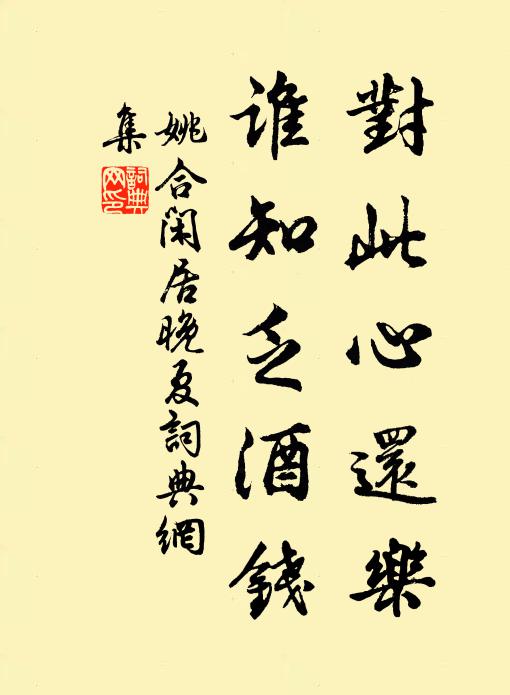 對此心還樂
誰知乏酒錢
姚合閑居晚夏詞典網
集
詞典
网印